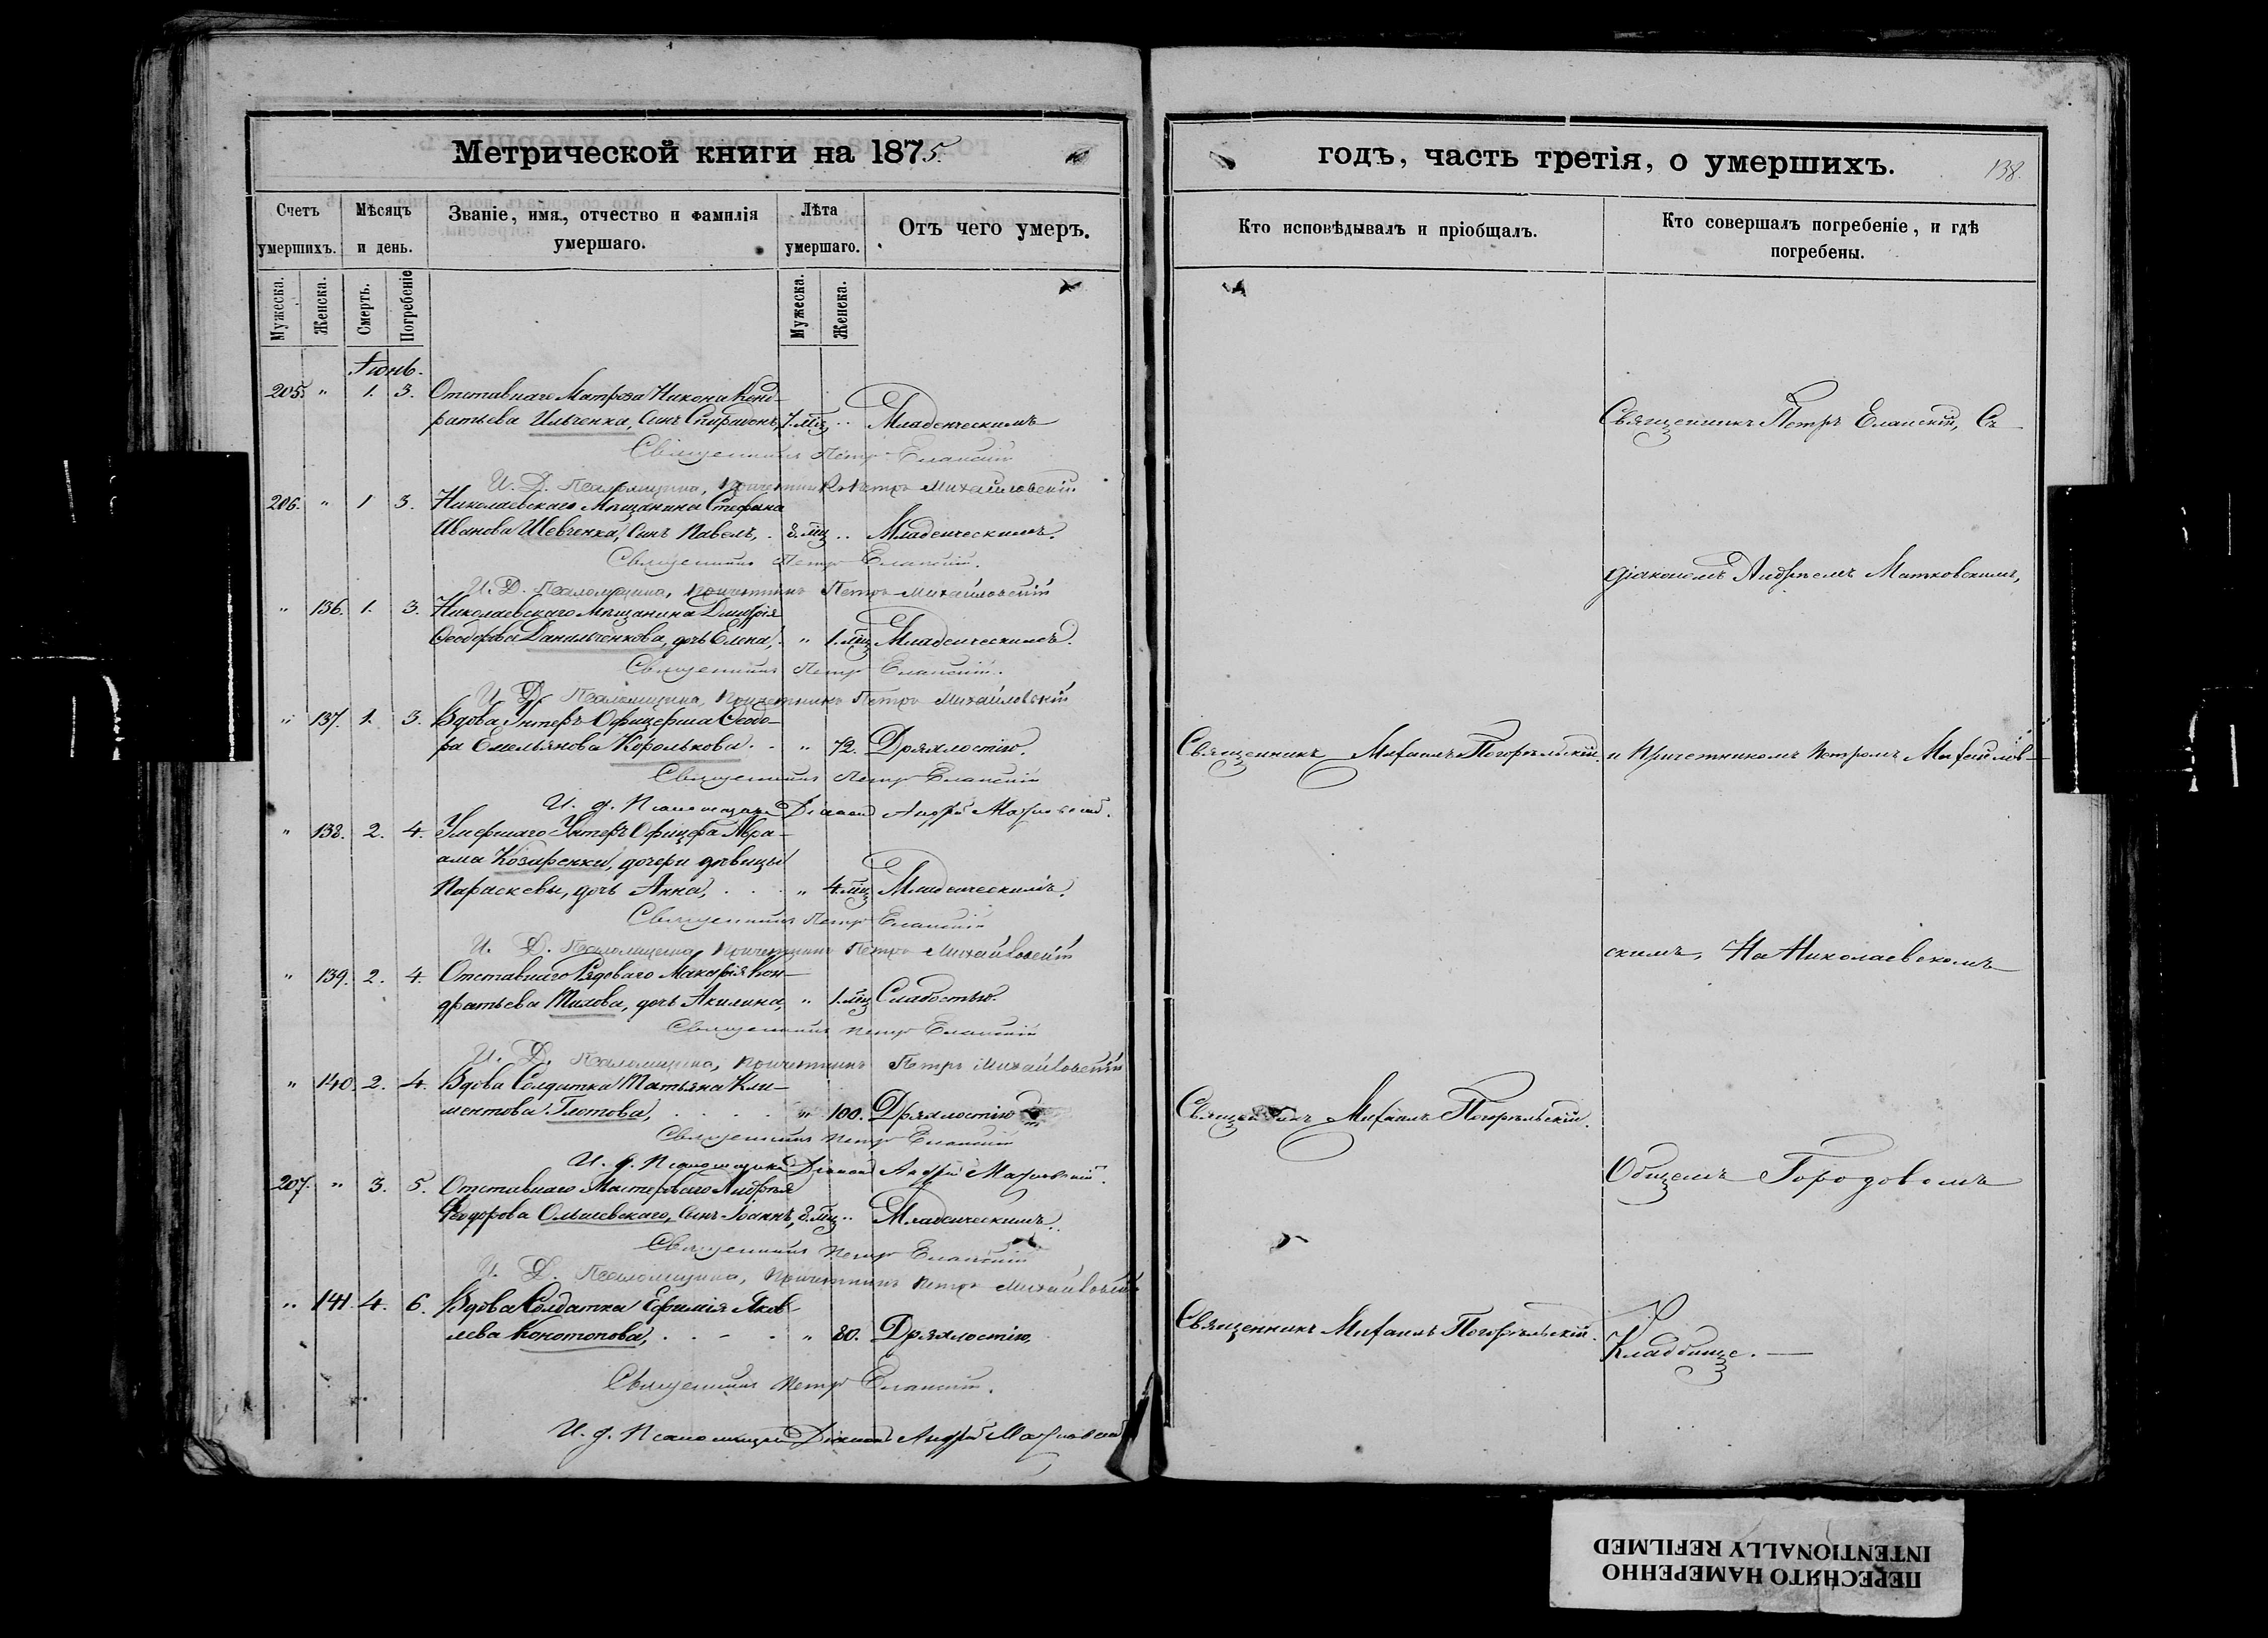 Метрической книги на 1875.
Счетъ умершихъ.
Мѣсяцъ и день.
Званіе, имя, отчество и фамилія умершаго.
Лѣта умершаго.
Отъ чего умеръ.
Мужеска.
Женска.
Смерть.
Погребеніе
Мужеска.
Женска.
Іюнь.
205. " 1. 3. Отставнаго Матроса Никона Конд-
ратьева Ильченка, сынъ Спиридонъ, 7. мц. " Младенческимъ
Священникъ Петръ Еланскій
И. Д. Псаломщика, Причетникъ Петръ Михайловскій
206. " 1 3. Николаевскаго Мѣщанина Стефана
Иванова Шевченка, сынъ Павелъ, 8. мц " Младенческимъ.
Священникъ Петръ Еланскій.
И. Д. Псаломщика, Причетникъ Петръ Михайловскій
" 136. 1. 3. Николаевскаго Мѣщанина Димитрія
Ѳеодорова Данильченкова, дочь Елена, " 1. мц Младенческимъ.
Священникъ Петръ Еланскій.
И. Д. Псаломщика, Причетникъ Петръ Михайловскій
" 137. 1. 3. Вдова Унтеръ-Офицерша Ѳеодо-
ра Емельянова Королькова. " 72. Дряхлостію.
Священникъ Петръ Еланскій
И. д. Псаломщика Діаконъ Андрей
" 138. 2. 4. Умершаго Унтеръ Офицера Авра-
ама Козаренка, дочери дѣвицы
Параскевы, дочь Анна, " 4. мц Младенческимъ.
Священникъ Петръ Еланскій
И. Д. Псаломщика, Причетникъ Петръ Михайловскій
" 139. 2. 4. Отставнаго Рядоваго Макарія Кон-
дратьева Титова, дочь Акилина, " 1. мц Слабостью.
Священникъ Петръ Еланскій
И. Д. Псаломщика, Причетникъ Петръ Михайловскій
" 140. 2. 4. Вдова Солдатка Татьяна Кли-
ментова Глотова, " 100. Дряхлостію
Священникъ Петръ Еланскій
И. д. Псаломщика Діаконъ Андрей
207. " 3. 5. Отставнаго Мастероваго Андрея
Ѳеодорова Ольшевскаго, сынъ Іоаннъ, 8. мц " Младенческимъ.
Священникъ Петръ Еланскій
И. Д. Псаломщика, Причетникъ Петръ Михайловскій
" 141. 4. 6. Вдова Солдатка Ефимія Яков-
лева Конотопова, " 80. Дряхлостію,
Священникъ Петръ Еланскій.
И. д. Псаломщика Діаконъ Андрей
годъ, часть третія, о умершихъ.
138.
Кто исповѣдывалъ и пріобщалъ.
Кто совершалъ погребеніе, и гдѣ погребены.
Священникъ Петръ Еланскій, Съ
діакономъ Андреемъ Матковскимъ,
Священникъ Михаилъ Погорѣльскій. и Причетникомъ Петромъ Михайлов-
скимъ, На Николаевскомъ
Священникъ Михаилъ Погорѣльскій.
Общемъ Городовомъ
Священникъ Михаилъ Погорѣльскій.
Кладбище. —
ПЕРЕСНЯТО НАМЕРЕННО
INTENTIONALLY REFILMED